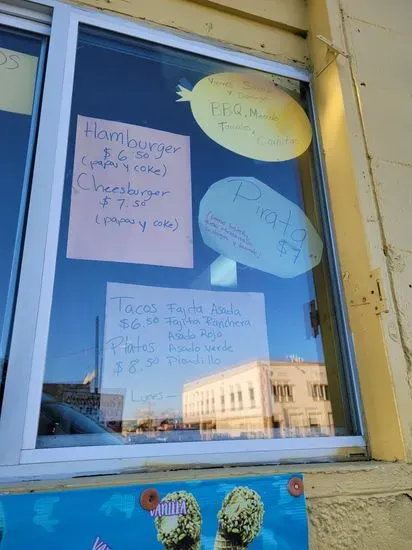 OS
Viernes
y
BBQ, Menudo
Carnitas
Hamburger
$ 6.50
(papas y coke)
Cheesburger
$ 7.50
(papas y coke)
Pirata
$7
Tacos Fajita Asada
$6.50 Fajita Ranchera
Asado Rojo
Platos Asado Verde
$8.50 Picadillo
Lunes
VANILLA